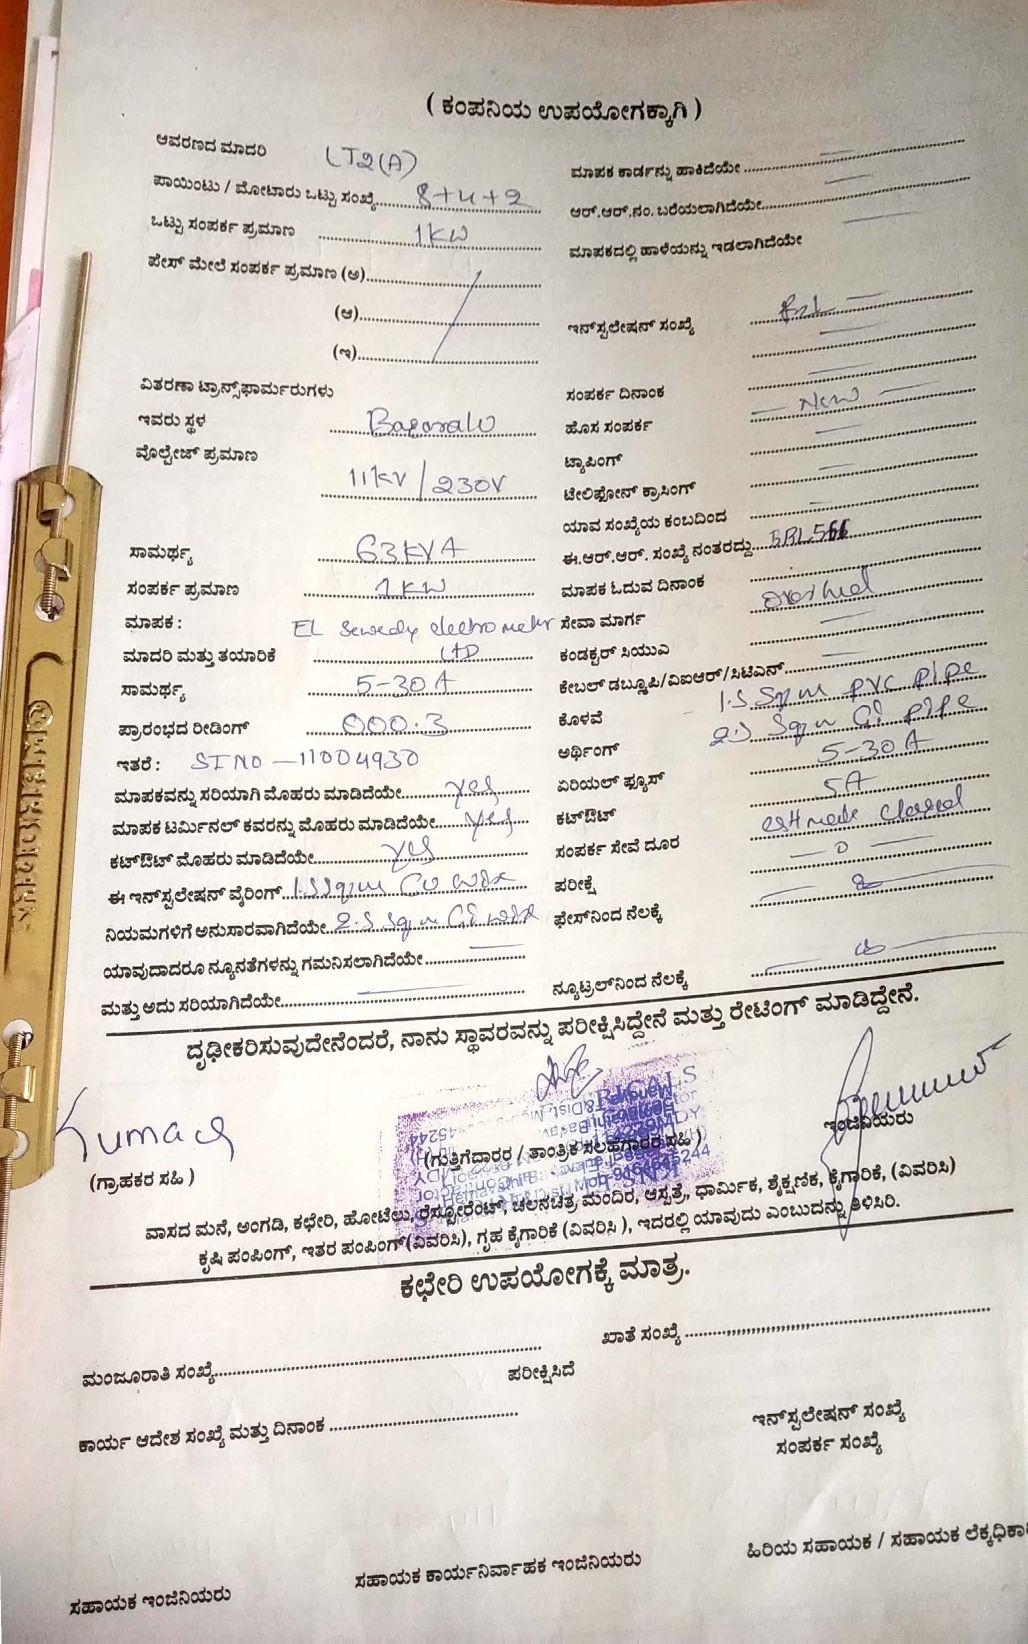 ( ಕಂಪನಿಯ ಉಪಯೋಗಕ್ಕಾಗಿ )
ಆವರಣದ ಮಾದರಿ LT2(A)
ಪಾಯಿಂಟು / ಮೋಟಾರು ಒಟ್ಟು ಸಂಖ್ಯೆ 8+4+2
ಒಟ್ಟು ಸಂಪರ್ಕ ಪ್ರಮಾಣ 1KW
ಪೇಸ್ ಮೇಲೆ ಸಂಪರ್ಕ ಪ್ರಮಾಣ (ಅ)
(ಆ)
(ಇ)
ವಿತರಣಾ ಟ್ರಾನ್ಸ್‌ಫಾರ್ಮರುಗಳು
ಇವರು ಸ್ಥಳ
ವೊಲ್ಟೇಜ್ ಪ್ರಮಾಣ
11KV / 230V
ಸಾಮರ್ಥ್ಯ 63KVA
ಸಂಪರ್ಕ ಪ್ರಮಾಣ 1KW
ಮಾಪಕ : EL Sewedy electrometer
ಮಾದರಿ ಮತ್ತು ತಯಾರಿಕೆ LTD
ಸಾಮರ್ಥ್ಯ 5-30A
ಪ್ರಾರಂಭದ ರೀಡಿಂಗ್ 000.3
ಇತರೆ : SINO - 11004930
ಮಾಪಕವನ್ನು ಸರಿಯಾಗಿ ಮೊಹರು ಮಾಡಿದೆಯೇ yes
ಮಾಪಕ ಟರ್ಮಿನಲ್ ಕವರನ್ನು ಮೊಹರು ಮಾಡಿದೆಯೇ yes
ಕಟ್‌ಔಟ್ ಮೊಹರು ಮಾಡಿದೆಯೇ yes
ಈ ಇನ್‌ಸ್ಟಲೇಷನ್ ವೈರಿಂಗ್ 1.5 Sqm CU
ನಿಯಮಗಳಿಗೆ ಅನುಸಾರವಾಗಿದೆಯೇ 2.5 Sqm GI
ಯಾವುದಾದರೂ ನ್ಯೂನತೆಗಳನ್ನು ಗಮನಿಸಲಾಗಿದೆಯೇ
ಮತ್ತು ಅದು ಸರಿಯಾಗಿದೆಯೇ
ಮಾಪಕ ಕಾರ್ಡನ್ನು ಹಾಕಿದೆಯೇ
ಆರ್.ಆರ್.ನಂ. ಬರೆಯಲಾಗಿದೆಯೇ
ಮಾಪಕದಲ್ಲಿ ಹಾಳೆಯನ್ನು ಇಡಲಾಗಿದೆಯೇ
ಇನ್‌ಸ್ಟಲೇಷನ್ ಸಂಖ್ಯೆ
ಸಂಪರ್ಕ ದಿನಾಂಕ
ಹೊಸ ಸಂಪರ್ಕ New
ಟ್ಯಾಪಿಂಗ್
ಟೇಲಿಫೋನ್ ಕ್ರಾಸಿಂಗ್
ಯಾವ ಸಂಖ್ಯೆಯ ಕಂಬದಿಂದ
ಈ.ಆರ್.ಆರ್. ಸಂಖ್ಯೆ ನಂತರದ್ದು
ಮಾಪಕ ಓದುವ ದಿನಾಂಕ
ಸೇವಾ ಮಾರ್ಗ
ಕಂಡಕ್ಟರ್ ಸಿಯುವಿ
ಕೇಬಲ್ ಡಬ್ಲೂಪಿ/ವಿಐಆರ್/ಸಿಟಿಎನ್
ಕೊಳವೆ 1.5 Sqm PVC Pipe
ಅರ್ಥಿಂಗ್ 2.5 Sqm GI Pipe
ಏರಿಯಲ್ ಫ್ಯೂಸ್ 5-30A
ಕಟ್‌ಔಟ್ 5A
ಸಂಪರ್ಕ ಸೇವೆ ದೂರ
ಪರೀಕ್ಷೆ
ಫೇಸ್‌ನಿಂದ ನೆಲಕ್ಕೆ
ನ್ಯೂಟ್ರಲ್‌ನಿಂದ ನೆಲಕ್ಕೆ
ದೃಢೀಕರಿಸುವುದೇನೆಂದರೆ, ನಾನು ಸ್ಥಾವರವನ್ನು ಪರೀಕ್ಷಿಸಿದ್ದೇನೆ ಮತ್ತು ರೇಟಿಂಗ್ ಮಾಡಿದ್ದೇನೆ.
(ಗ್ರಾಹಕರ ಸಹಿ )
(ಗುತ್ತಿಗೆದಾರರ / ತಾಂತ್ರಿಕ ಸಲಹೆಗಾರರ ಸಹಿ )
ಇಂಜಿನಿಯರು
ವಾಸದ ಮನೆ, ಅಂಗಡಿ, ಕಛೇರಿ, ಹೋಟೆಲು, ರೆಸ್ಟೋರೆಂಟ್, ಚಲನಚಿತ್ರ ಮಂದಿರ, ಆಸ್ಪತ್ರೆ, ಧಾರ್ಮಿಕ, ಶೈಕ್ಷಣಿಕ, ಕೈಗಾರಿಕೆ, (ವಿವರಿಸಿ)
ಕೃಷಿ ಪಂಪಿಂಗ್, ಇತರ ಪಂಪಿಂಗ್(ವಿವರಿಸಿ), ಗೃಹ ಕೈಗಾರಿಕೆ (ವಿವರಿಸಿ ), ಇದರಲ್ಲಿ ಯಾವುದು ಎಂಬುದನ್ನು ತಿಳಿಸಿರಿ.
ಕಛೇರಿ ಉಪಯೋಗಕ್ಕೆ ಮಾತ್ರ.
ಮಂಜೂರಾತಿ ಸಂಖ್ಯೆ
ಖಾತೆ ಸಂಖ್ಯೆ
ಪರೀಕ್ಷಿಸಿದೆ
ಕಾರ್ಯ ಆದೇಶ ಸಂಖ್ಯೆ ಮತ್ತು ದಿನಾಂಕ
ಇನ್‌ಸ್ಟಲೇಷನ್ ಸಂಖ್ಯೆ
ಸಂಪರ್ಕ ಸಂಖ್ಯೆ
ಸಹಾಯಕ ಇಂಜಿನಿಯರು
ಸಹಾಯಕ ಕಾರ್ಯನಿರ್ವಾಹಕ ಇಂಜಿನಿಯರು
ಹಿರಿಯ ಸಹಾಯಕ / ಸಹಾಯಕ